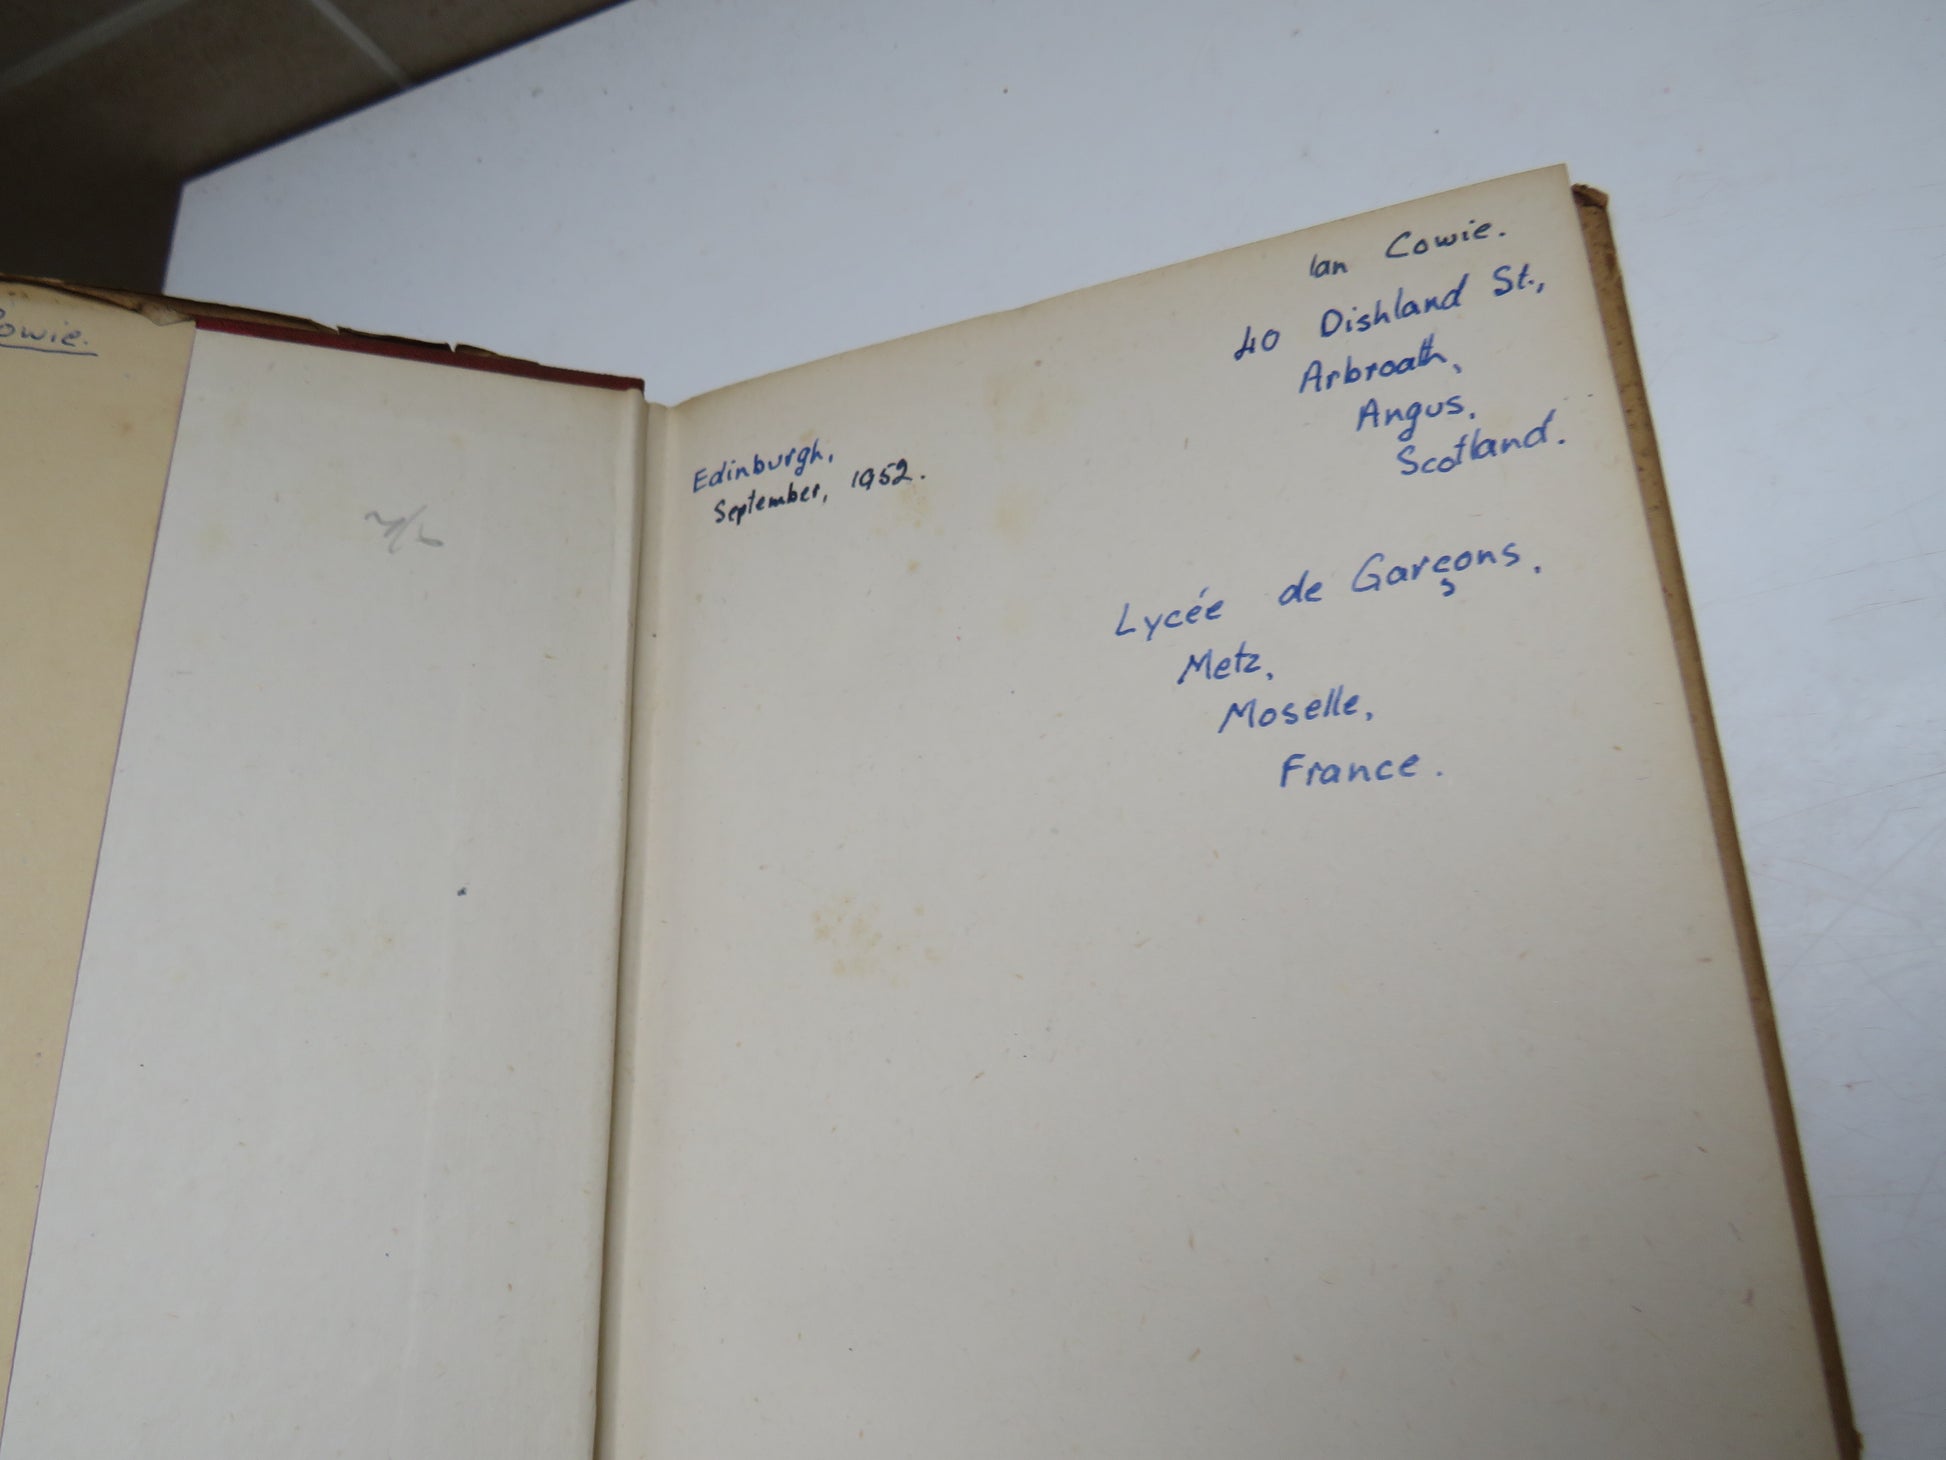 Cowie.
Ian Cowie.
40 Dishland St.,
Arbroath,
Angus,
Scotland.
Edinburgh,
September, 1952.
Lycée de Garçons,
Metz,
Moselle,
France.
7/6